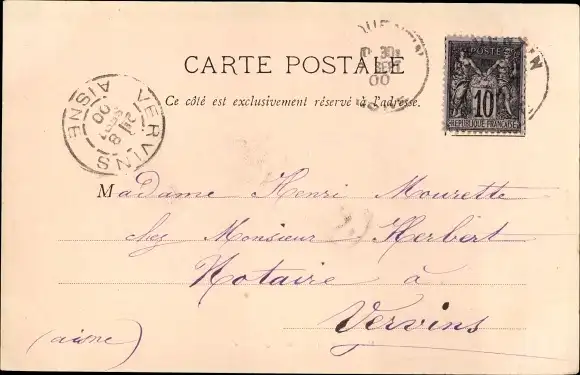 CARTE POSTALE
Ce côté est exclusivement réservé à l'adresse.
POSTE
10
REPUBLIQUE FRANÇAISE
30
SEPT
00
VERVINS
AISNE
00
Madame Henri Mourette
chez Monsieur Herbert
Notaire à
Vervins
(aisne)